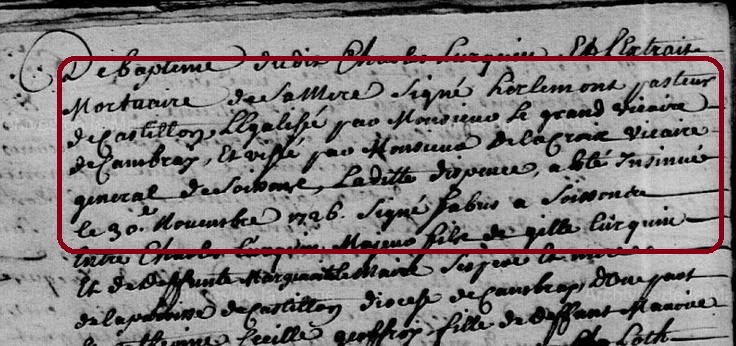 De bapteme dudit Charles Lurquin Et l'Extrait
Mortuaire de sa Mere signé herlemont pasteur
de Castillon, Legalissé par Monsieur le grand vicaire
de Cambray, Et vissé par Monsieur de la Croix vicaire
general de Soissons, Laditte dispence, a été Insinuée
le 30e. Novembre 1726. signé fabus a Soissons
Entre Charles Lurquin, Maseur fils de gille Lurquin
Et de deffunte Marguerite le Maire ses pere et mere
de la paroisse de Castillon diocese de Cambray, D'une part
Cecille geoffroy fille de deffunt